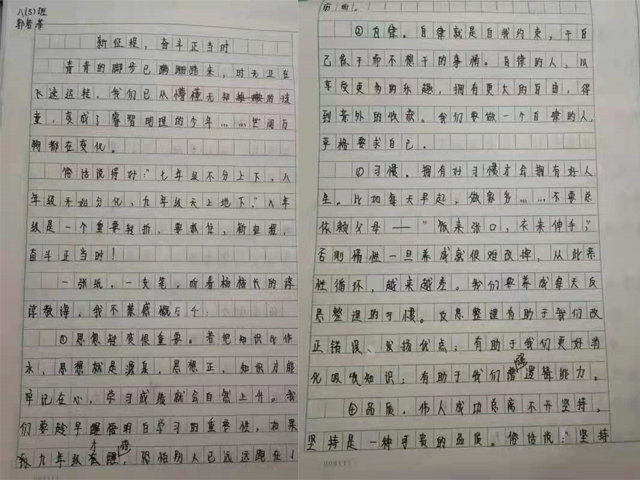 八(5)班
新征程，奋斗正当时
青青的脚步已蹒跚踏来，时光正在
飞速运转，我们已从懵懂无知的孩
童，变成了睿智明理的少年……世间万
物都在变化。
俗话说得好："七年级不分上下，八
年级开始分化，九年级天上地下。"八年
级是一个重要转折，要抓住，新征程，
奋斗正当时！
一张纸，一支笔，听着杨校长的谆
谆教诲，我不禁感慨万千：
①思想转变很重要。若把知识比作
水，思想就是源泉，思想正，知识才能
牢记在心，学习成绩就会自然上升。我
们要趁早明白学习的重要性，如果
到九年级才醒悟，恐怕别人已远远跑在
前面。
②自律。自律就是自我约束，干自
己该干而不想干的事情。自律的人，从
享受更多的乐趣，拥有更大的自由，得
到意外的收获。我们要做一个自律的人，
严格要求自己。
③习惯。拥有好习惯才会拥有好人
生。比如每天早起，做家务……不要总
依赖父母——"饭来张口，衣来伸手"，
否则惰性一旦养成就很难改掉，从此恶
性循环，越来越差。我们要养成每天反
思整理的习惯。反思整理有助于我们改
正错误、发扬优点；有助于我们更好消
化吸收知识；有助于我们增强逻辑能力。
④品质。伟人成功总离不开坚持，
坚持是一种可贵的品质。俗话说："坚持